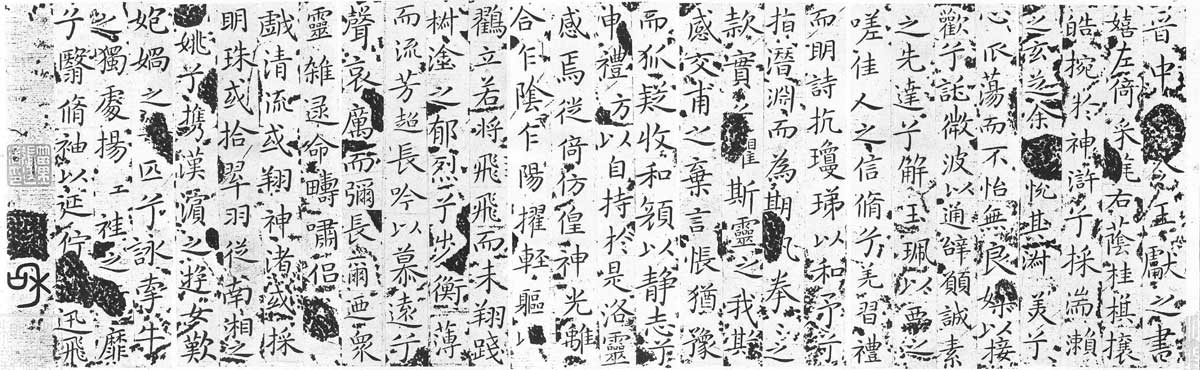 晉中令王獻之書
嬉左倚采旄右蔭桂棋攘
皓捥於神滸兮採湍瀨
之玄芝余悅其淑美兮
心振蕩而不怡無良媒以接
歡兮託微波以通辭願誠素
之先達兮解玉珮以要之
嗟佳人之信脩兮羌習禮
而明詩抗瓊珶以和予兮
指潛淵而為期執拳之
款實兮懼斯靈之我欺
感交甫之棄言悵猶豫
而狐疑收和顏以靜志兮
申禮防以自持於是洛靈
感焉徙倚彷徨神光離
合乍陰乍陽擢輕軀以
鶴立若將飛飛而未翔踐
椒塗之郁烈兮步衡薄
而流芳超長吟以慕遠兮
聲哀厲而彌長爾乃眾
靈雜遝命疇嘯侶
戲清流或翔神渚或採
明珠或拾翠羽從南湘之
姚兮攜漢濱之遊女歎
媧之匹兮詠牽牛
之獨處揚袿之靡
兮翳脩袖以延佇迅飛